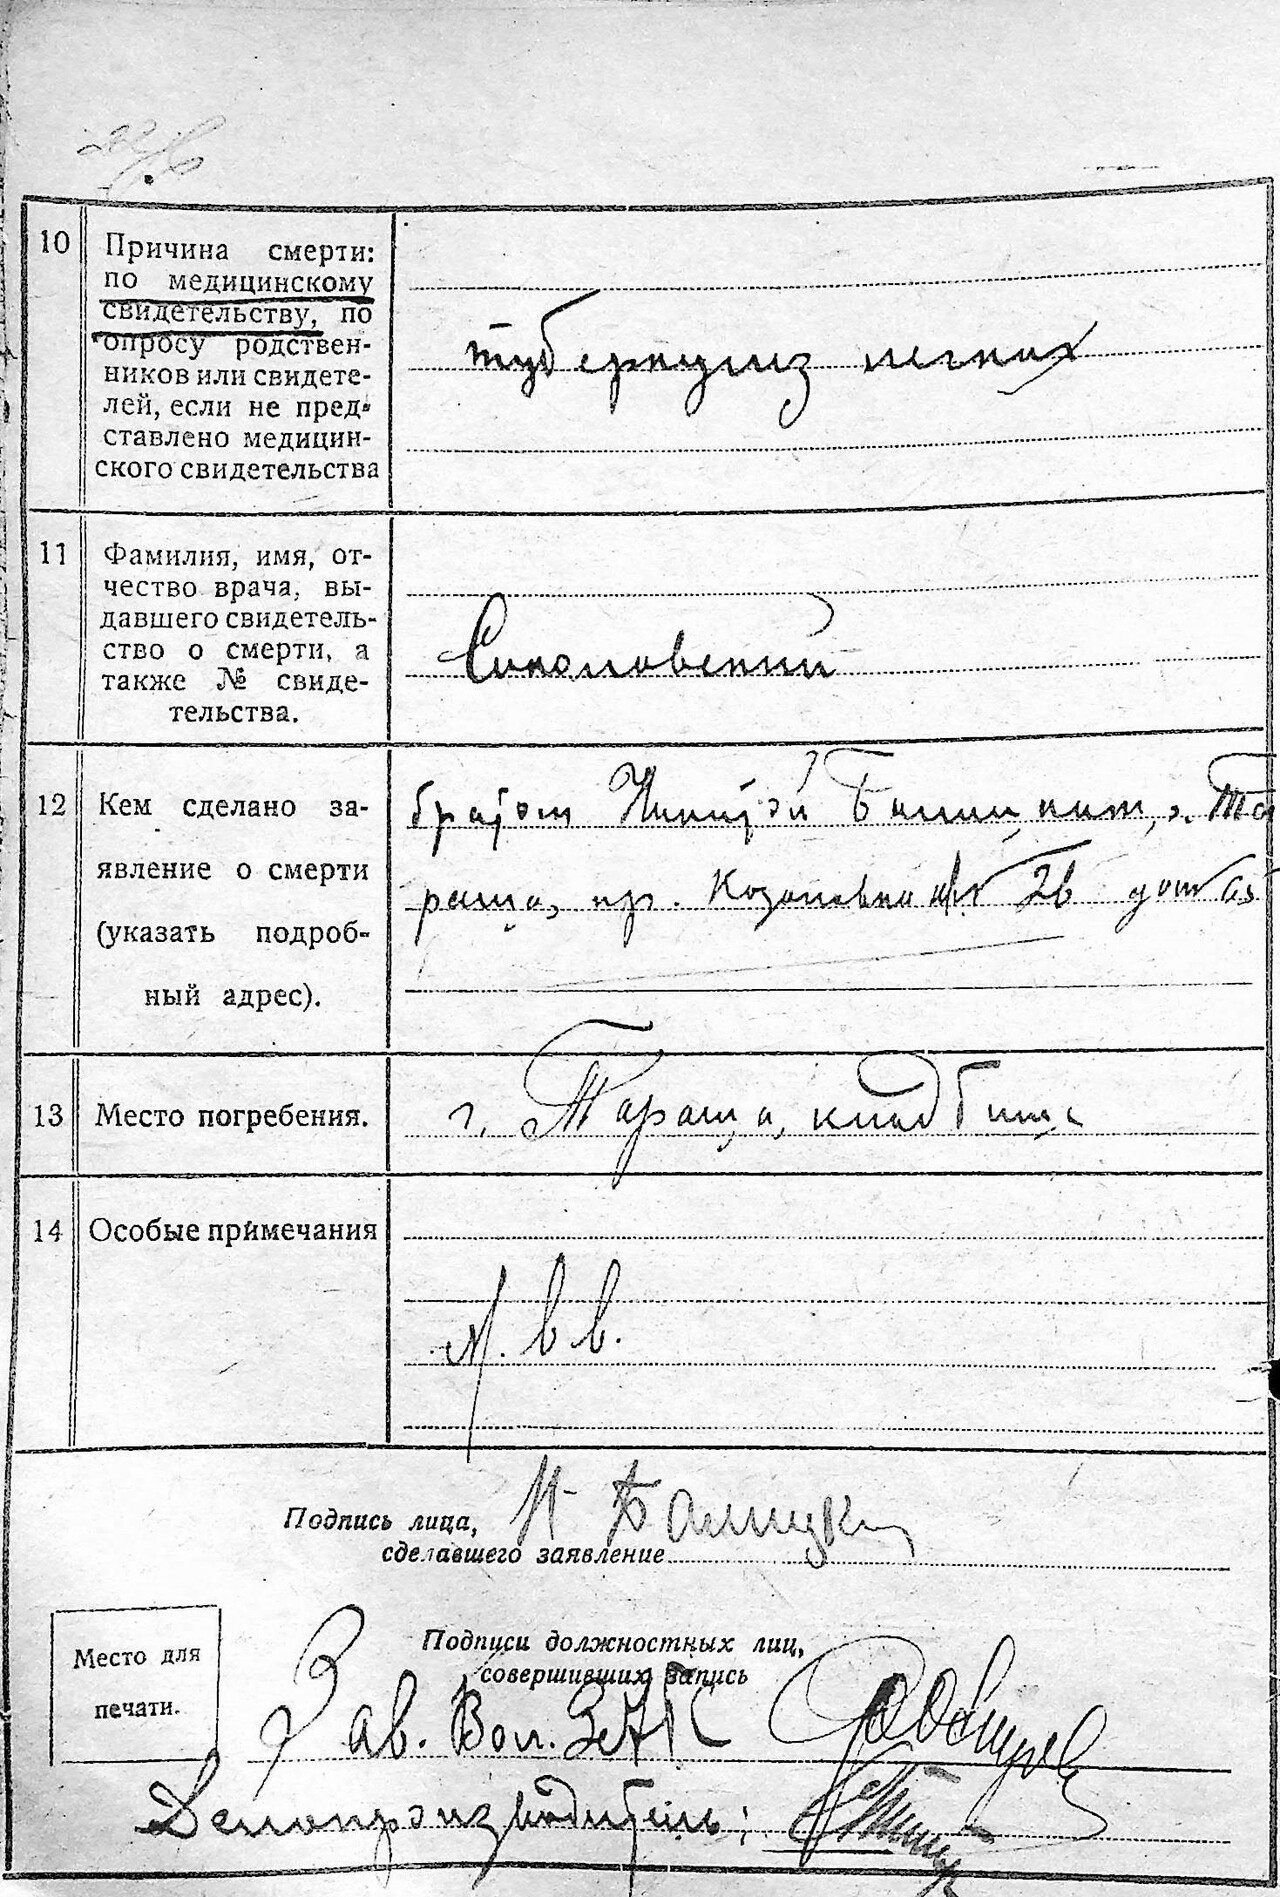 10 Причина смерти:
по медицинскому
свидетельству, по
опросу родствен-
ников или свидете-
лей, если не пред-
ставлено медицин-
ского свидетельства
туберкулиз легких
11 Фамилия, имя, от-
чество врача, вы-
давшего свидетель-
ство о смерти, а
также № свиде-
тельства.
Соколовский
12 Кем сделано за-
явление о смерти
(указать подроб-
ный адрес).
братом Никитой Балицким, г. Та
раща, пр.
13 Место погребения.
г. Тараща, кладбище
14 Особые примечания
Подпись лица,
сделавшего заявление
Н Балицкий
Место для
печати.
Подписи должностных лиц,
совершивших запись
Зав. Вол. ЗАГС
Делопроизводитель: